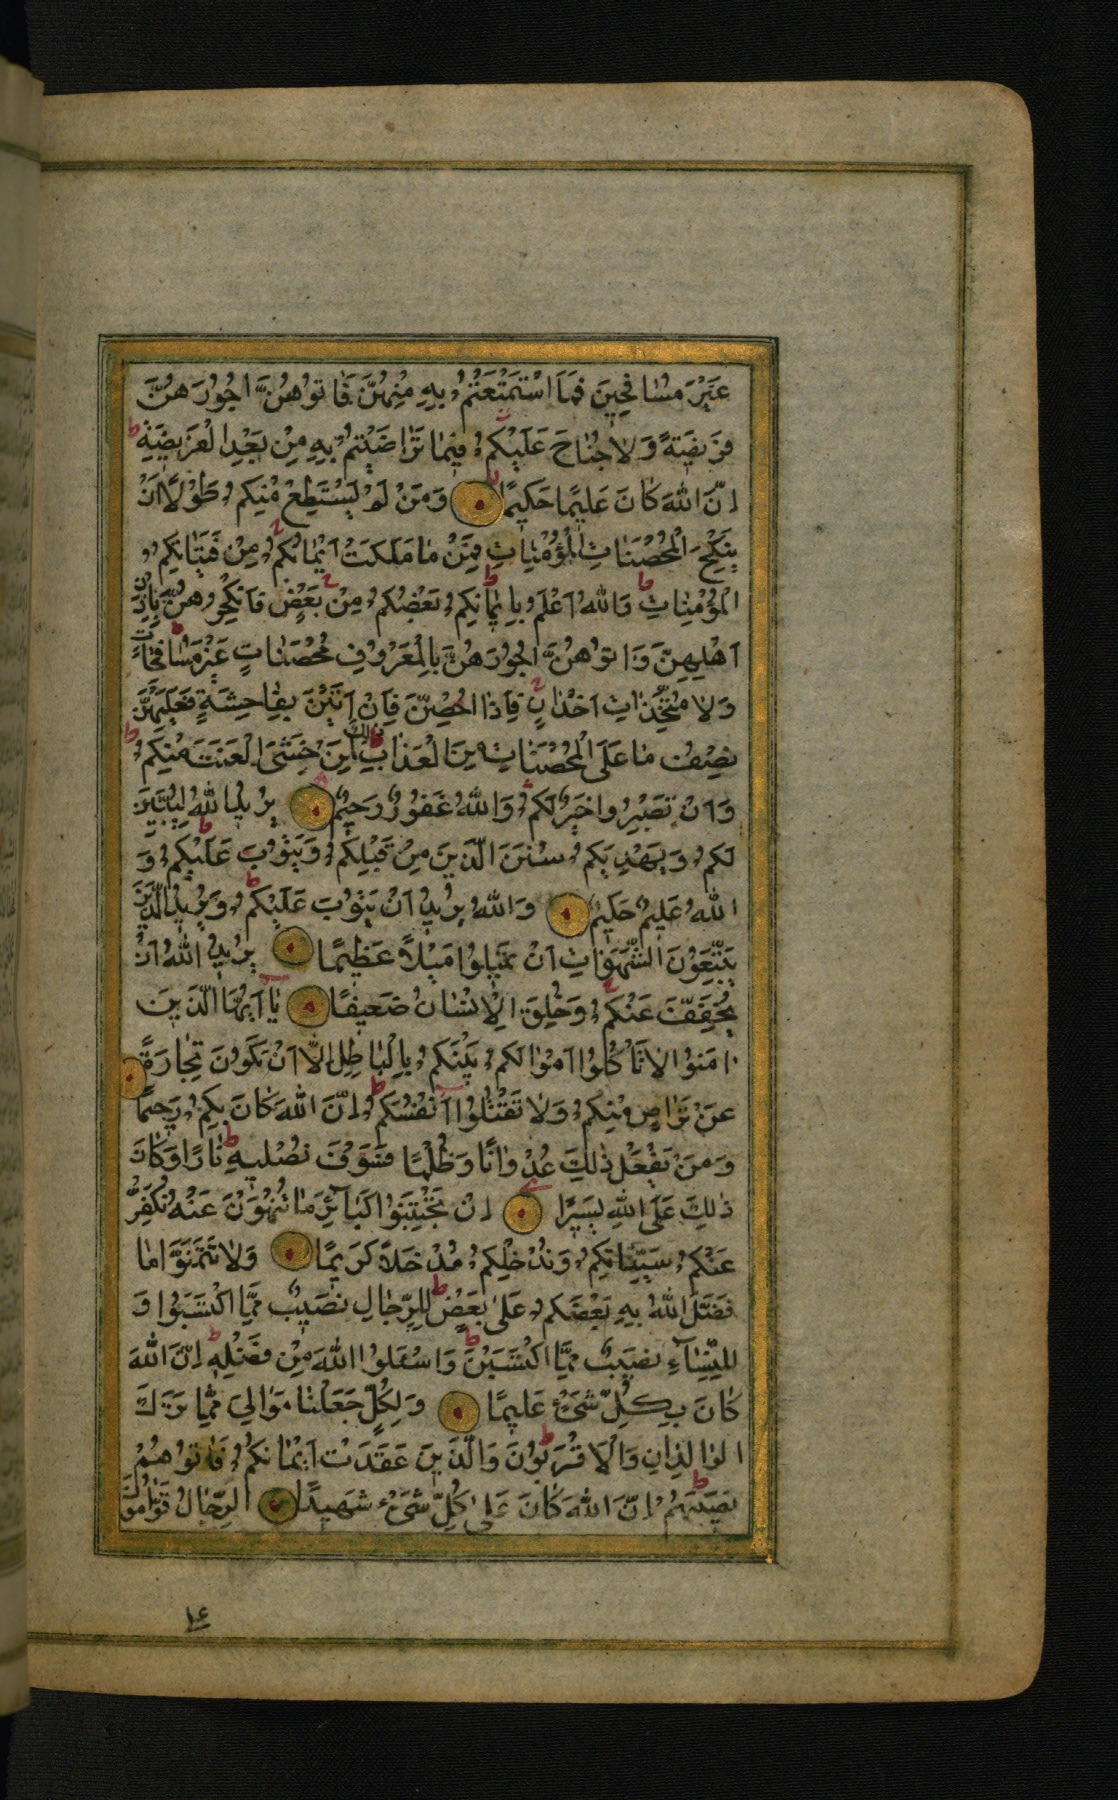 غَيْرَ مُسَافِحِينَ فَمَا اسْتَمْتَعْتُمْ بِهِ مِنْهُنَّ فَاتُوهُنَّ اُجُورَهُنَّ
فَرِيضَةً وَلَا جُنَاحَ عَلَيْكُمْ فِيمَا تَرَاضَيْتُمْ بِهِ مِنْ بَعْدِ الْفَرِيضَةِ ط
اِنَّ اللهَ كَانَ عَلِيمًا حَكِيمًا وَمَنْ لَمْ يَسْتَطِعْ مِنْكُمْ طَوْلًا اَنْ
يَنْكِحَ الْمُحْصَنَاتِ الْمُؤْمِنَاتِ فَمِنْ مَا مَلَكَتْ اَيْمَانُكُمْ مِنْ فَتَيَاتِكُمُ
الْمُؤْمِنَاتِ ط وَاللهُ اَعْلَمُ بِاِيمَانِكُمْ ط بَعْضُكُمْ مِنْ بَعْضٍ فَانْكِحُوهُنَّ بِاِذْنِ
اَهْلِهِنَّ وَاتُوهُنَّ اُجُورَهُنَّ بِالْمَعْرُوفِ مُحْصَنَاتٍ غَيْرَ مُسَافِحَاتٍ
وَلَا مُتَّخِذَاتِ اَخْدَانٍ فَاِذَا اُحْصِنَّ فَاِنْ اَتَيْنَ بِفَاحِشَةٍ فَعَلَيْهِنَّ
نِصْفُ مَا عَلَى الْمُحْصَنَاتِ مِنَ الْعَذَابِ ط ذٰلِكَ لِمَنْ خَشِىَ الْعَنَتَ مِنْكُمْ ط
وَاَنْ تَصْبِرُوا خَيْرٌ لَكُمْ وَاللهُ غَفُورٌ رَحِيمٌ يُرِيدُ اللهُ لِيُبَيِّنَ
لَكُمْ وَيَهْدِيَكُمْ سُنَنَ الَّذِينَ مِنْ قَبْلِكُمْ وَيَتُوبَ عَلَيْكُمْ ط وَ
اللهُ عَلِيمٌ حَكِيمٌ وَاللهُ يُرِيدُ اَنْ يَتُوبَ عَلَيْكُمْ ط وَيُرِيدُ الَّذِينَ
يَتَّبِعُونَ الشَّهَوَاتِ اَنْ تَمِيلُوا مَيْلًا عَظِيمًا يُرِيدُ اللهُ اَنْ
يُخَفِّفَ عَنْكُمْ وَخُلِقَ الْاِنْسَانُ ضَعِيفًا يَا اَيُّهَا الَّذِينَ
امَنُوا لَا تَاْكُلُوا اَمْوَالَكُمْ بَيْنَكُمْ بِالْبَاطِلِ اِلَّا اَنْ تَكُونَ تِجَارَةً
عَنْ تَرَاضٍ مِنْكُمْ وَلَا تَقْتُلُوا اَنْفُسَكُمْ ط اِنَّ اللهَ كَانَ بِكُمْ رَحِيمًا
وَمَنْ يَفْعَلْ ذٰلِكَ عُدْوَانًا وَظُلْمًا فَسَوْفَ نُصْلِيهِ نَارًا ط وَكَانَ
ذٰلِكَ عَلَى اللهِ يَسِيرًا اِنْ تَجْتَنِبُوا كَبَائِرَ مَا تُنْهَوْنَ عَنْهُ نُكَفِّرْ
عَنْكُمْ سَيِّئَاتِكُمْ وَنُدْخِلْكُمْ مُدْخَلًا كَرِيمًا وَلَا تَتَمَنَّوْا مَا
فَضَّلَ اللهُ بِهِ بَعْضَكُمْ عَلَى بَعْضٍ ط لِلرِّجَالِ نَصِيبٌ مِمَّا اكْتَسَبُوا وَ
لِلنِّسَاءِ نَصِيبٌ مِمَّا اكْتَسَبْنَ ط وَاسْئَلُوا اللهَ مِنْ فَضْلِهِ ط اِنَّ اللهَ
كَانَ بِكُلِّ شَىْءٍ عَلِيمًا وَلِكُلٍّ جَعَلْنَا مَوَالِىَ مِمَّا تَرَكَ
الْوَالِدَانِ وَالْاَقْرَبُونَ ط وَالَّذِينَ عَقَدَتْ اَيْمَانُكُمْ فَاتُوهُمْ
نَصِيبَهُمْ ط اِنَّ اللهَ كَانَ عَلَى كُلِّ شَىْءٍ شَهِيدًا الرِّجَالُ قَوَّامُونَ